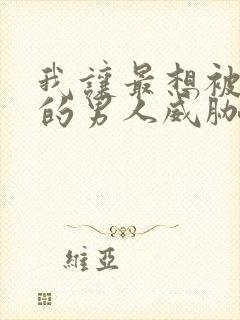 我讓最想被
的男人威脅
維亞